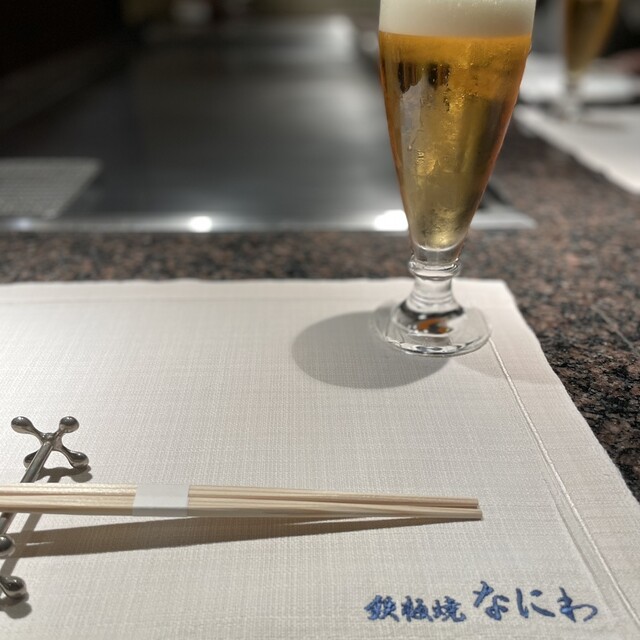 鉄板焼 なにわ